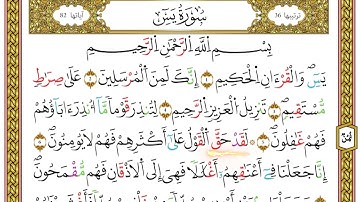 ترتيبها 36 سُورَةُ يسٓ آياتها 82
بِسْمِ اللَّهِ الرَّحْمَٰنِ الرَّحِيمِ
يسٓ ۝ وَالْقُرْءَانِ الْحَكِيمِ ۝ إِنَّكَ لَمِنَ الْمُرْسَلِينَ ۝ عَلَىٰ صِرَاطٍ
مُّسْتَقِيمٍ ۝ تَنزِيلَ الْعَزِيزِ الرَّحِيمِ ۝ لِتُنذِرَ قَوْمًا مَّا أُنذِرَ ءَابَاؤُهُمْ
فَهُمْ غَٰفِلُونَ ۝ لَقَدْ حَقَّ الْقَوْلُ عَلَىٰ أَكْثَرِهِمْ فَهُمْ لَا يُؤْمِنُونَ ۝
إِنَّا جَعَلْنَا فِي أَعْنَٰقِهِمْ أَغْلَٰلًا فَهِيَ إِلَى الْأَذْقَانِ فَهُم مُّقْمَحُونَ